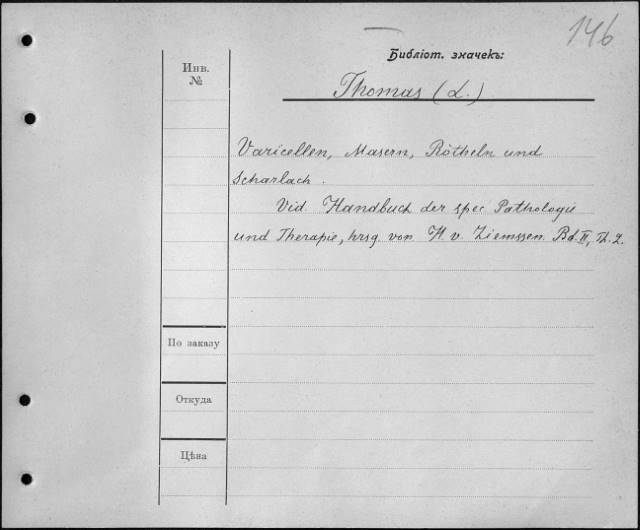 146
Библіот. значекъ:
Инв.
№
Thomas (L.)
Varicellen, Masern, Rötheln und
Scharlach.
Vid. Handbuch der spec. Pathologie
und Therapie, hrsg. von H. v. Ziemssen. Bd. II, Th. 2.
По заказу
Откуда
Цѣна